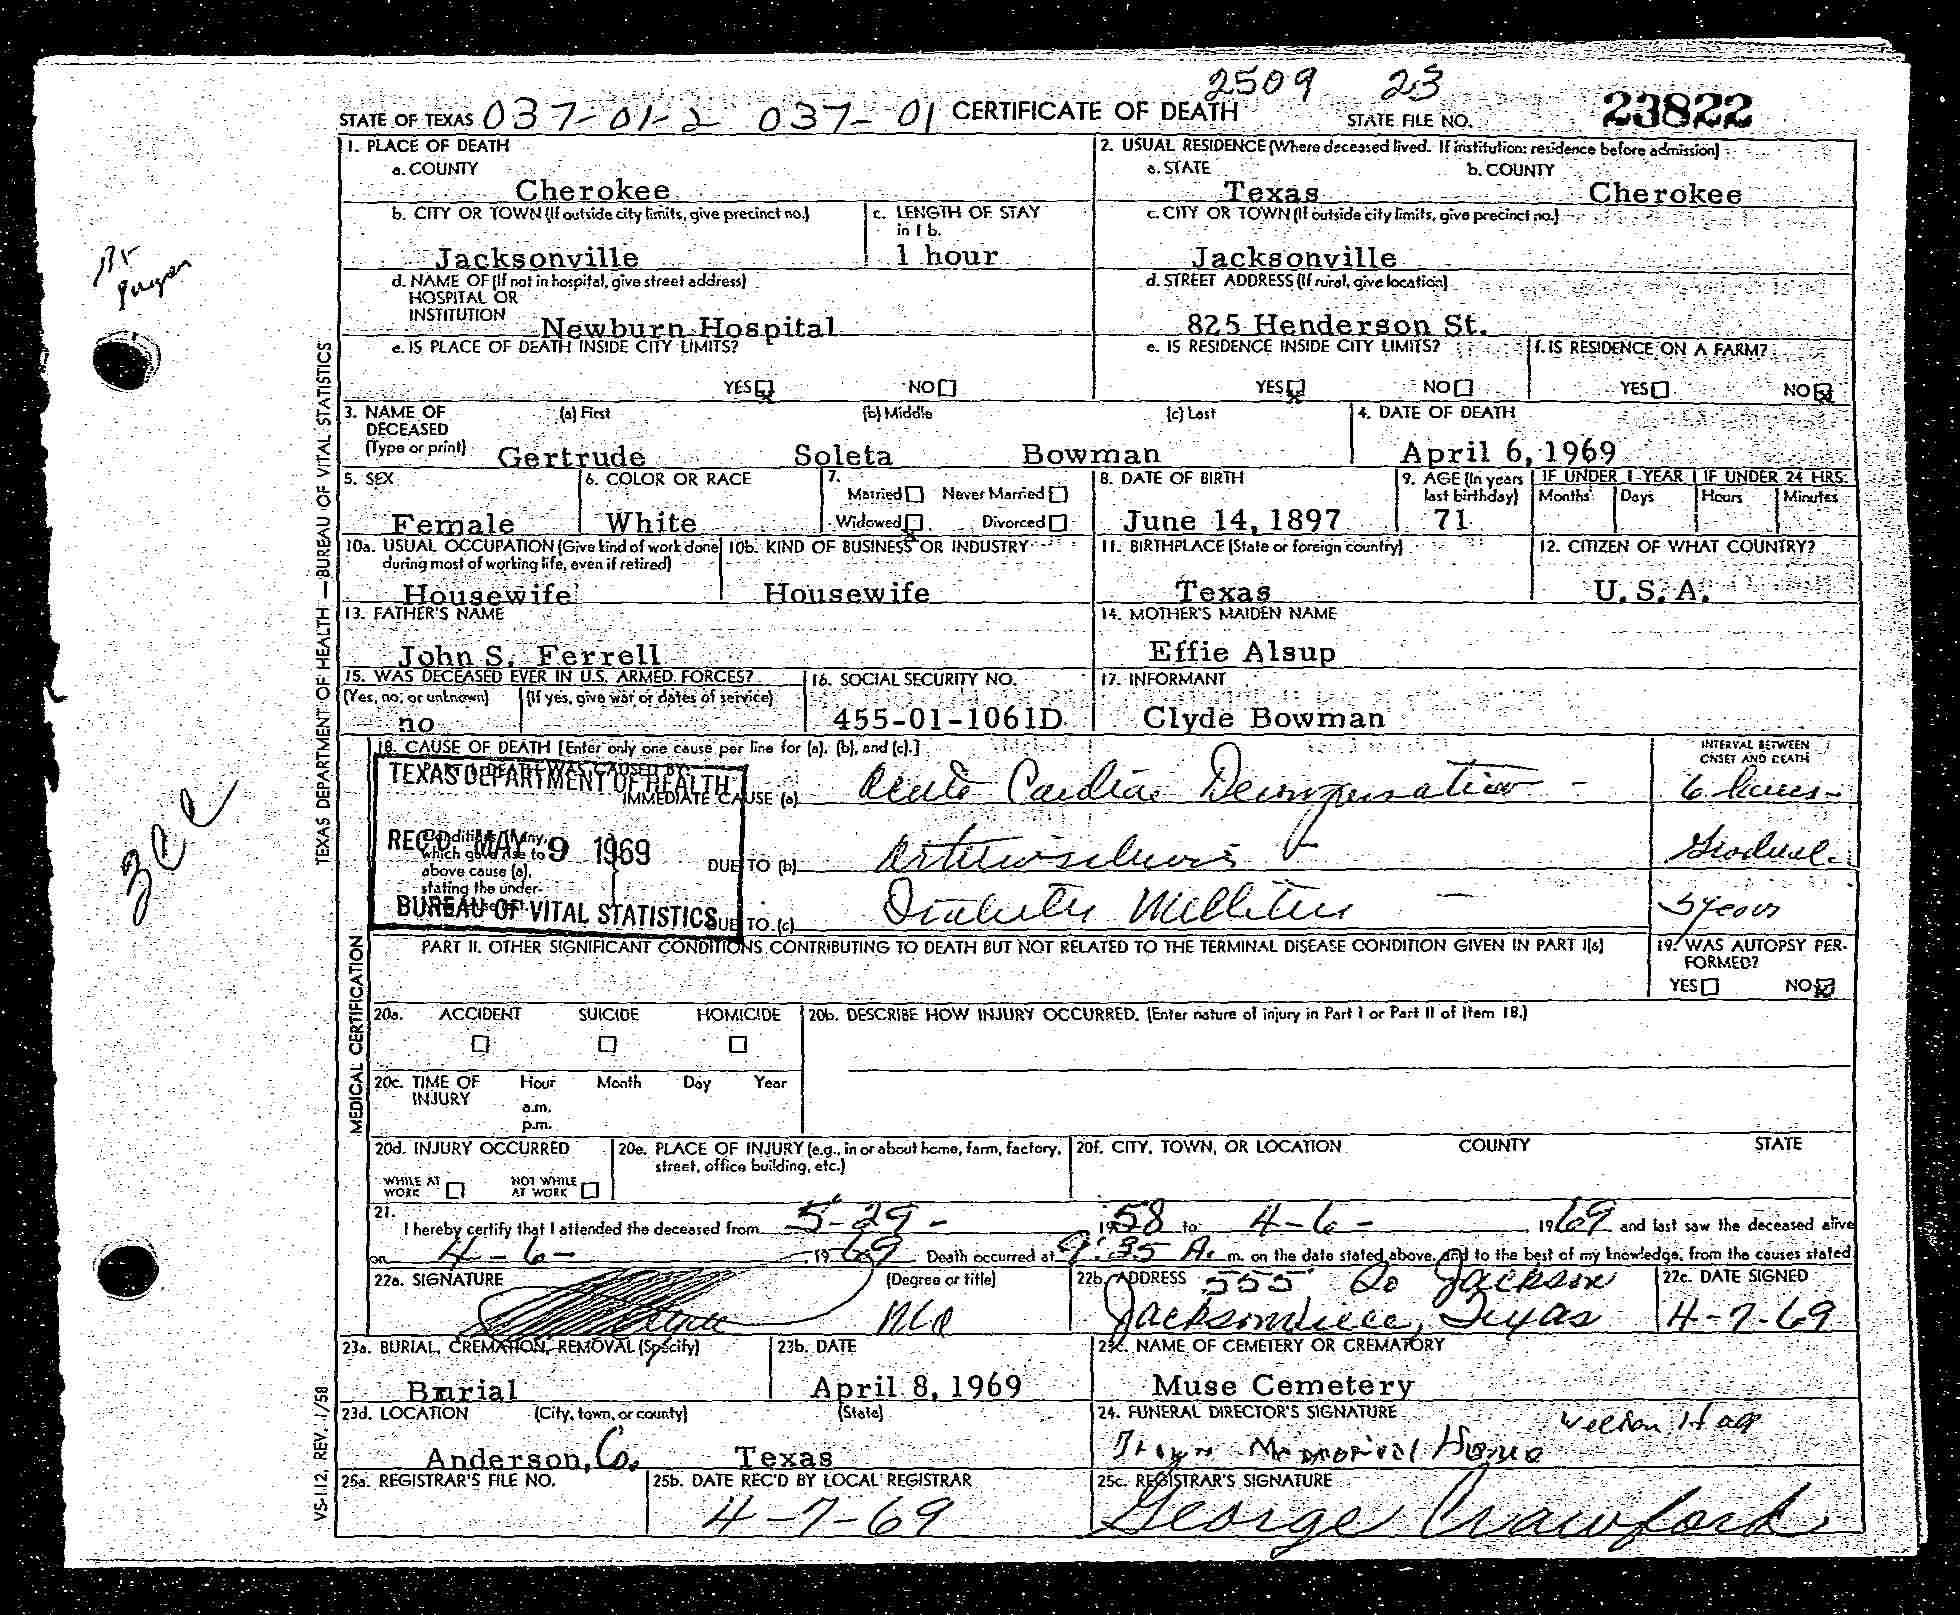 2509 23
STATE OF TEXAS 037-01-2 037-01 CERTIFICATE OF DEATH STATE FILE NO. 23822
1. PLACE OF DEATH
a. COUNTY
Cherokee
2. USUAL RESIDENCE (Where deceased lived. If institution: residence before admission)
a. STATE b. COUNTY
Texas Cherokee
b. CITY OR TOWN (If outside city limits, give precinct no.)
Jacksonville
c. LENGTH OF STAY
in 1 b.
1 hour
c. CITY OR TOWN (If outside city limits, give precinct no.)
Jacksonville
d. NAME OF (If not in hospital, give street address)
HOSPITAL OR
INSTITUTION
Newburn Hospital
d. STREET ADDRESS (If rural, give location)
825 Henderson St.
e. IS PLACE OF DEATH INSIDE CITY LIMITS?
YES NO
e. IS RESIDENCE INSIDE CITY LIMITS?
YES NO
f. IS RESIDENCE ON A FARM?
YES NO
3. NAME OF
DECEASED
(Type or print)
(a) First (b) Middle (c) Last
Gertrude Soleta Bowman
4. DATE OF DEATH
April 6, 1969
5. SEX
Female
6. COLOR OR RACE
White
7.
Married Never Married
Widowed Divorced
8. DATE OF BIRTH
June 14, 1897
9. AGE (In years
last birthday)
71
IF UNDER 1 YEAR IF UNDER 24 HRS.
Months Days Hours Minutes
10a. USUAL OCCUPATION (Give kind of work done
during most of working life, even if retired)
Housewife
10b. KIND OF BUSINESS OR INDUSTRY
Housewife
11. BIRTHPLACE (State or foreign country)
Texas
12. CITIZEN OF WHAT COUNTRY?
U. S. A.
13. FATHER'S NAME
John S. Ferrell
14. MOTHER'S MAIDEN NAME
Effie Alsup
15. WAS DECEASED EVER IN U.S. ARMED FORCES?
(Yes, no, or unknown) (If yes, give war or dates of service)
no
16. SOCIAL SECURITY NO.
455-01-1061D
17. INFORMANT
Clyde Bowman
18. CAUSE OF DEATH [Enter only one cause per line for (a), (b), and (c).]
INTERVAL BETWEEN
ONSET AND DEATH
TEXAS DEPARTMENT OF HEALTH
REC'D. MAY 9 1969
BUREAU OF VITAL STATISTICS
IMMEDIATE CAUSE (a) Acute Cardiac Decompensation - 6 hours-
which gave rise to
above cause (a),
stating the under-
DUE TO (b) Arteriosclerosis Gradual-
DUE TO (c) Diabetes Mellitus - 5 years
PART II. OTHER SIGNIFICANT CONDITIONS CONTRIBUTING TO DEATH BUT NOT RELATED TO THE TERMINAL DISEASE CONDITION GIVEN IN PART I(a)
19. WAS AUTOPSY PER-
FORMED?
YES NO
20a. ACCIDENT SUICIDE HOMICIDE
20b. DESCRIBE HOW INJURY OCCURRED. (Enter nature of injury in Part I or Part II of Item 18.)
20c. TIME OF
INJURY
Hour Month Day Year
a.m.
p.m.
20d. INJURY OCCURRED
WHILE AT
WORK
NOT WHILE
AT WORK
20e. PLACE OF INJURY (e.g., in or about home, farm, factory,
street, office building, etc.)
20f. CITY, TOWN, OR LOCATION COUNTY STATE
21.
I hereby certify that I attended the deceased from 5-29- 1958 to 4-6- 1969 and last saw the deceased alive
on 4-6- 1969 Death occurred at 9:35 A. m. on the date stated above, and to the best of my knowledge, from the causes stated
22a. SIGNATURE (Degree or title)
MD
22b. ADDRESS 555 So Jackson
Jacksonville, Texas
22c. DATE SIGNED
4-7-69
23a. BURIAL, CREMATION, REMOVAL (Specify)
Burial
23b. DATE
April 8, 1969
23c. NAME OF CEMETERY OR CREMATORY
Muse Cemetery
23d. LOCATION (City, town, or county) (State)
Anderson, Co. Texas
24. FUNERAL DIRECTOR'S SIGNATURE
Memorial Home
25a. REGISTRAR'S FILE NO.
25b. DATE REC'D BY LOCAL REGISTRAR
4-7-69
25c. REGISTRAR'S SIGNATURE
George Crawford
TEXAS DEPARTMENT OF HEALTH — BUREAU OF VITAL STATISTICS
MEDICAL CERTIFICATION
VS-112, REV. 1/58